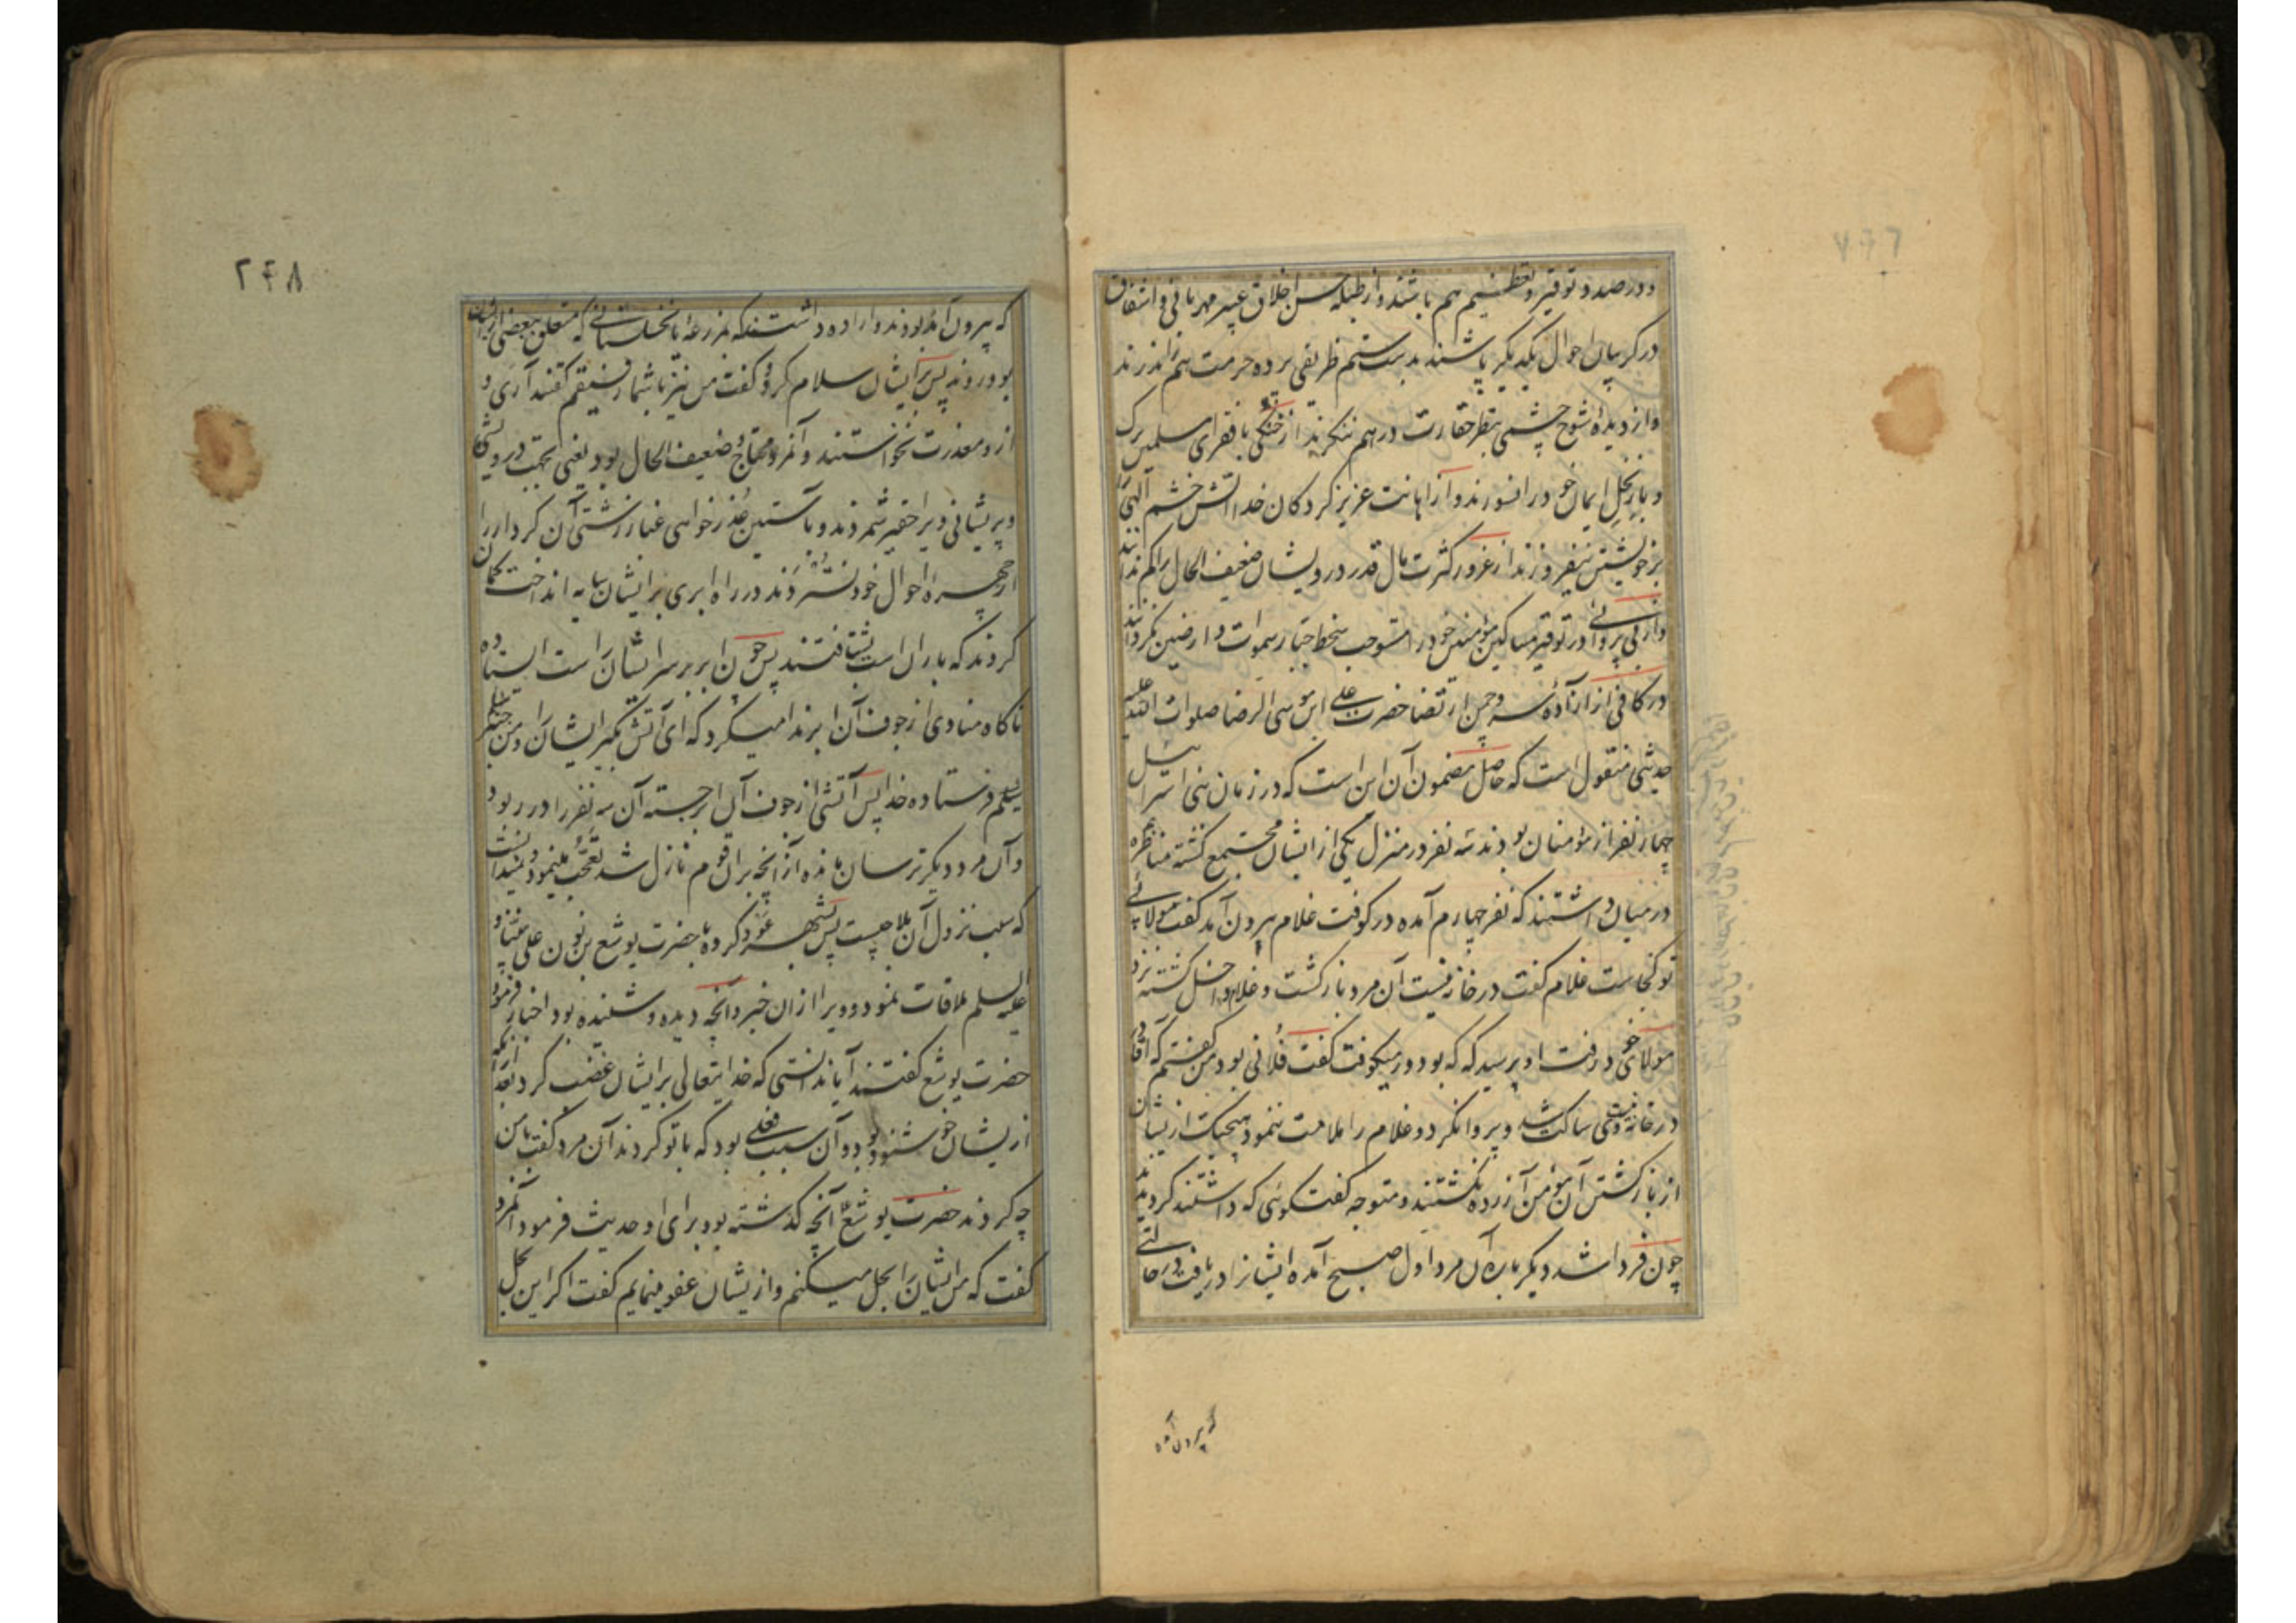 و در صدد توقیر و تعظیم هم باشند و از طبله حسن اخلاق عبیر مهربانی و اشفاق
در گریبان احوال یکدیگر پاشند بدست ستم ظریقی پرده حرمت هم ندرند
و از دیدهٔ شوخ چشمی بنظر حقارت در هم ننگرند از خنکی با فقرای مسلمین برک
و بار نخل ایمان خود را نسوزند و از اهانت عزیز کردگان خدا آتش خشم الهی را
بر خویشتن نیفروزند از غرور کثرت مال قدر درویشان ضعیف الحال را کم ندانند
و از بی پروائی در توقیر مساکین مؤمنین خود را مستوجب سخط جبار سموات و ارضین نگردانند
در کافی از آزاده سرو چمن ارتضا حضرت علی ابن موسی الرضا صلوات الله علیه
حدیثی منقول است که حاصل مضمون آن این است که در زمان بنی اسرائیل
چهار نفر از مؤمنان بودند سه نفر در منزل یکی از ایشان مجتمع گشته مناظره
در میان داشتند که نفر چهارم آمده در کوفت غلام بیرون آمد گفت مولای
تو کجاست غلام گفت در خانه نیست آن مرد بازگشت و غلام داخل گشته نزد
مولای خود رفت او پرسید که که بود در میکوفت گفت فلانی بود من گفتم که آقای من
در خانه نیست وی ساکت شد و پروا نکرد و غلام را ملامت ننمود و هیچیک از ایشان
از بازگشتن آن مؤمن آزرده نگشتند و متوجه گفت گوئی که داشتند گردیدند
چون فردا شد دیگر باره آن مرد اول صبح آمده ایشانرا دریافت در حالتی
که بیرون آمده
۲۴۸
که بیرون آمده بودند و اراده داشتند که بمزرعه یا نخلستانی که متعلق ببعضی از ایشان
بود روند پس بر ایشان سلام کرد و گفت من نیز با شما رفیقم گفتند آری و
ازو معذرت نخواستند و آنمرد محتاج و ضعیف الحال بود یعنی بجهت درویشی
و پریشانی ویرا حقیر شمردند و بآستین عذر خواهی غبار زشتی آن کردار را
از چهره احوال خود نستردند در راه ابری بر ایشان سایه انداخت گمان
کردند که باران است بشتافتند پس چون ابر بر سر ایشان راست ایستاده
ناگاه منادی از جوف آن ابر ندا میکرد که ای آتش بگیر ایشان را و من جبرئیلم
فرستاده خدا پس آتشی از جوف آن ابر جسته آن سه نفر را در ربود
و آن مرد دیگر ترسان مانده از آنچه بر آن قوم نازل شد تعجب مینمود و نمیدانست
که سبب نزول آن بلا چیست پس بشهر عود کرده با حضرت یوشع بن نون علی نبینا و
علیه السلم ملاقات نمود و ویرا از ان خبر و آنچه دیده و شنیده بود اخبار فرمود
حضرت یوشع گفتند آیا ندانستی که خدایتعالی بر ایشان غضب کرد بعد از آنکه
از یشان خوشنود بود و آن سبب فعلی بود که با تو کردند آن مرد گفت با من
چه کردند حضرت یوشع آنچه گذشته بود برای او حدیث فرمود آنمرد
گفت که من ایشان را بحل میکنم و از یشان عفو مینمایم گفت اگر این بحل